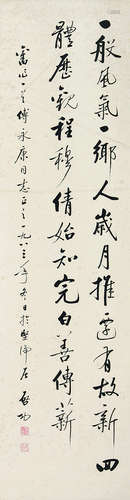 一般风氣一鄉人歲月推遷有故新四
體歷觀程穆倩始知完白善傳薪
永康同志正之一九八三年冬日於堅淨居啟功